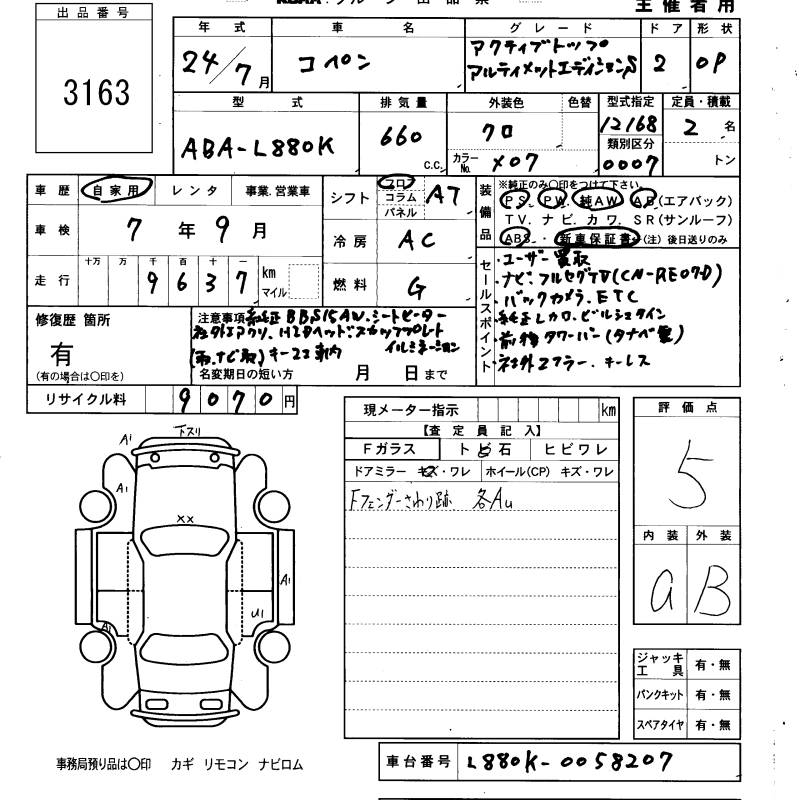 出品番号
3163
主催者用
年式 車名 グレード ドア 形状
24/7月 コペン アクティブトップ
アルティメットエディションS 2 OP
型式 排気量 外装色 色替 型式指定 定員・積載
ABA-L880K 660 c.c. クロ 12168 2名
カラーNo. X07 類別区分
0007 トン
車歴 自家用 レンタ 事業.営業車
シフト フロ コラム パネル AT
装備品
※純正のみ〇印をつけて下さい
PS. PW. 純AW. AB.(エアバック)
TV. ナビ. カワ. SR(サンルーフ)
ABS. ・ 新車保証書 (注) 後日送りのみ
車検 7年9月
冷房 AC
走行 十万 万 千 百 十 一
9637 km マイル
燃料 G
セールスポイント
・ユーザー買取
・ナビ、フルセグTV(CN-RE07D)
・バックカメラ、ETC
・純正レカロ、ビルシュタイン
・前後タワーバー(タナベ製)
・社外マフラー、キーレス
修復歴 箇所
有
(有の場合は〇印を)
注意事項 純正BBS15AW、シートヒーター
社外エアクリ、HIDヘッド、スカッフプレート
イルミネーション
(取、ナビ取) キー2コ車内
名変期日の短い方 月 日まで
リサイクル料 9070円
現メーター指示 km
【査定員記入】
Fガラス トビ石 ヒビワレ
ドアミラー キズ・ワレ ホイール(CP) キズ・ワレ
Fフェンダーさわり跡 各Au
評価点
5
内装 外装
a B
下スリ
A1
A1
XX
A1
U1
A1
ジャッキ工具 有・無
パンクキット 有・無
スペアタイヤ 有・無
事務局預り品は〇印 カギ リモコン ナビロム
車台番号 L880K-0058207